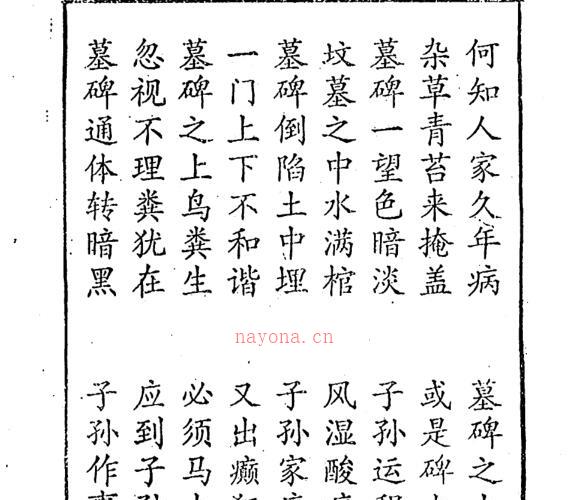 何知人家久年病 墓碑之
杂草青苔来掩盖 或是碑
墓碑一望色暗淡 子孙运
坟墓之中水满棺 风湿酸
墓碑倒陷土中埋 子孙家
一门上下不和谐 又出癫
墓碑之上鸟粪生 必须马
忽视不理粪犹在 应到子
墓碑通体转暗黑 子孙作
nayona.cn